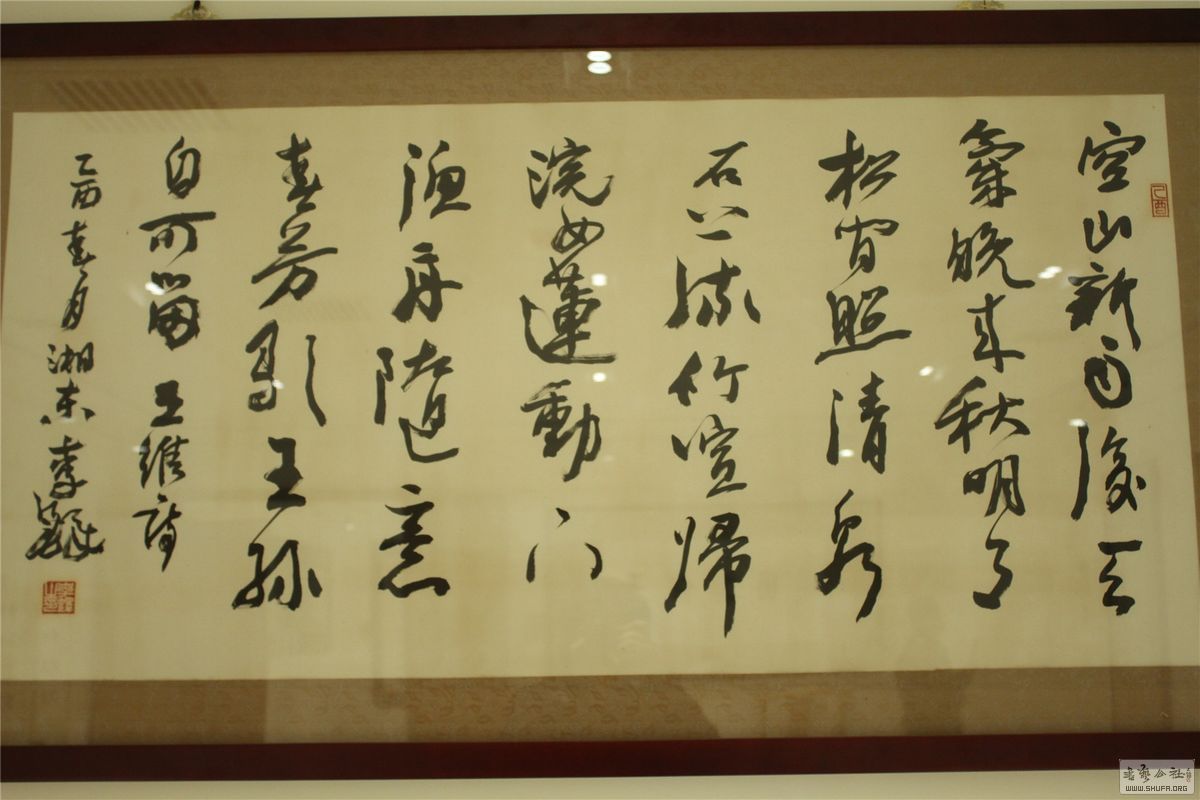 空山新雨後天
氣晚来秋明月
松間照清泉
石上流竹喧歸
浣女蓮動下
漁舟隨意
春芳歇王孫
自可留 王維詩
乙酉春月湘东李鐸
乙酉
书艺公社
WWW.SHUFA.ORG